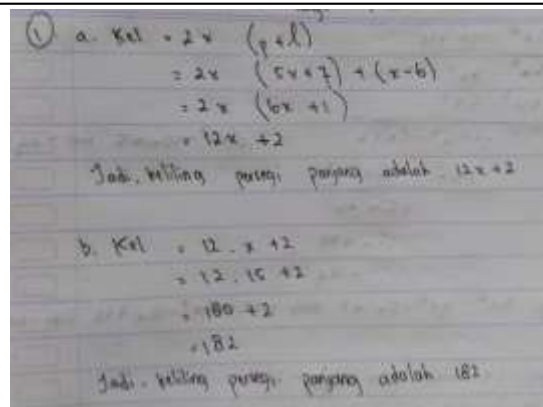 ① a. Kel = 2 x (p + l)
= 2x (5x + 7) + (x - 6)
= 2 x (6x + 1)
= 12x + 2
Jadi, keliling persegi panjang adalah 12x + 2
b. Kel = 12 . x + 2
= 12 . 15 + 2
= 180 + 2
= 182
Jadi, keliling persegi panjang adalah 182